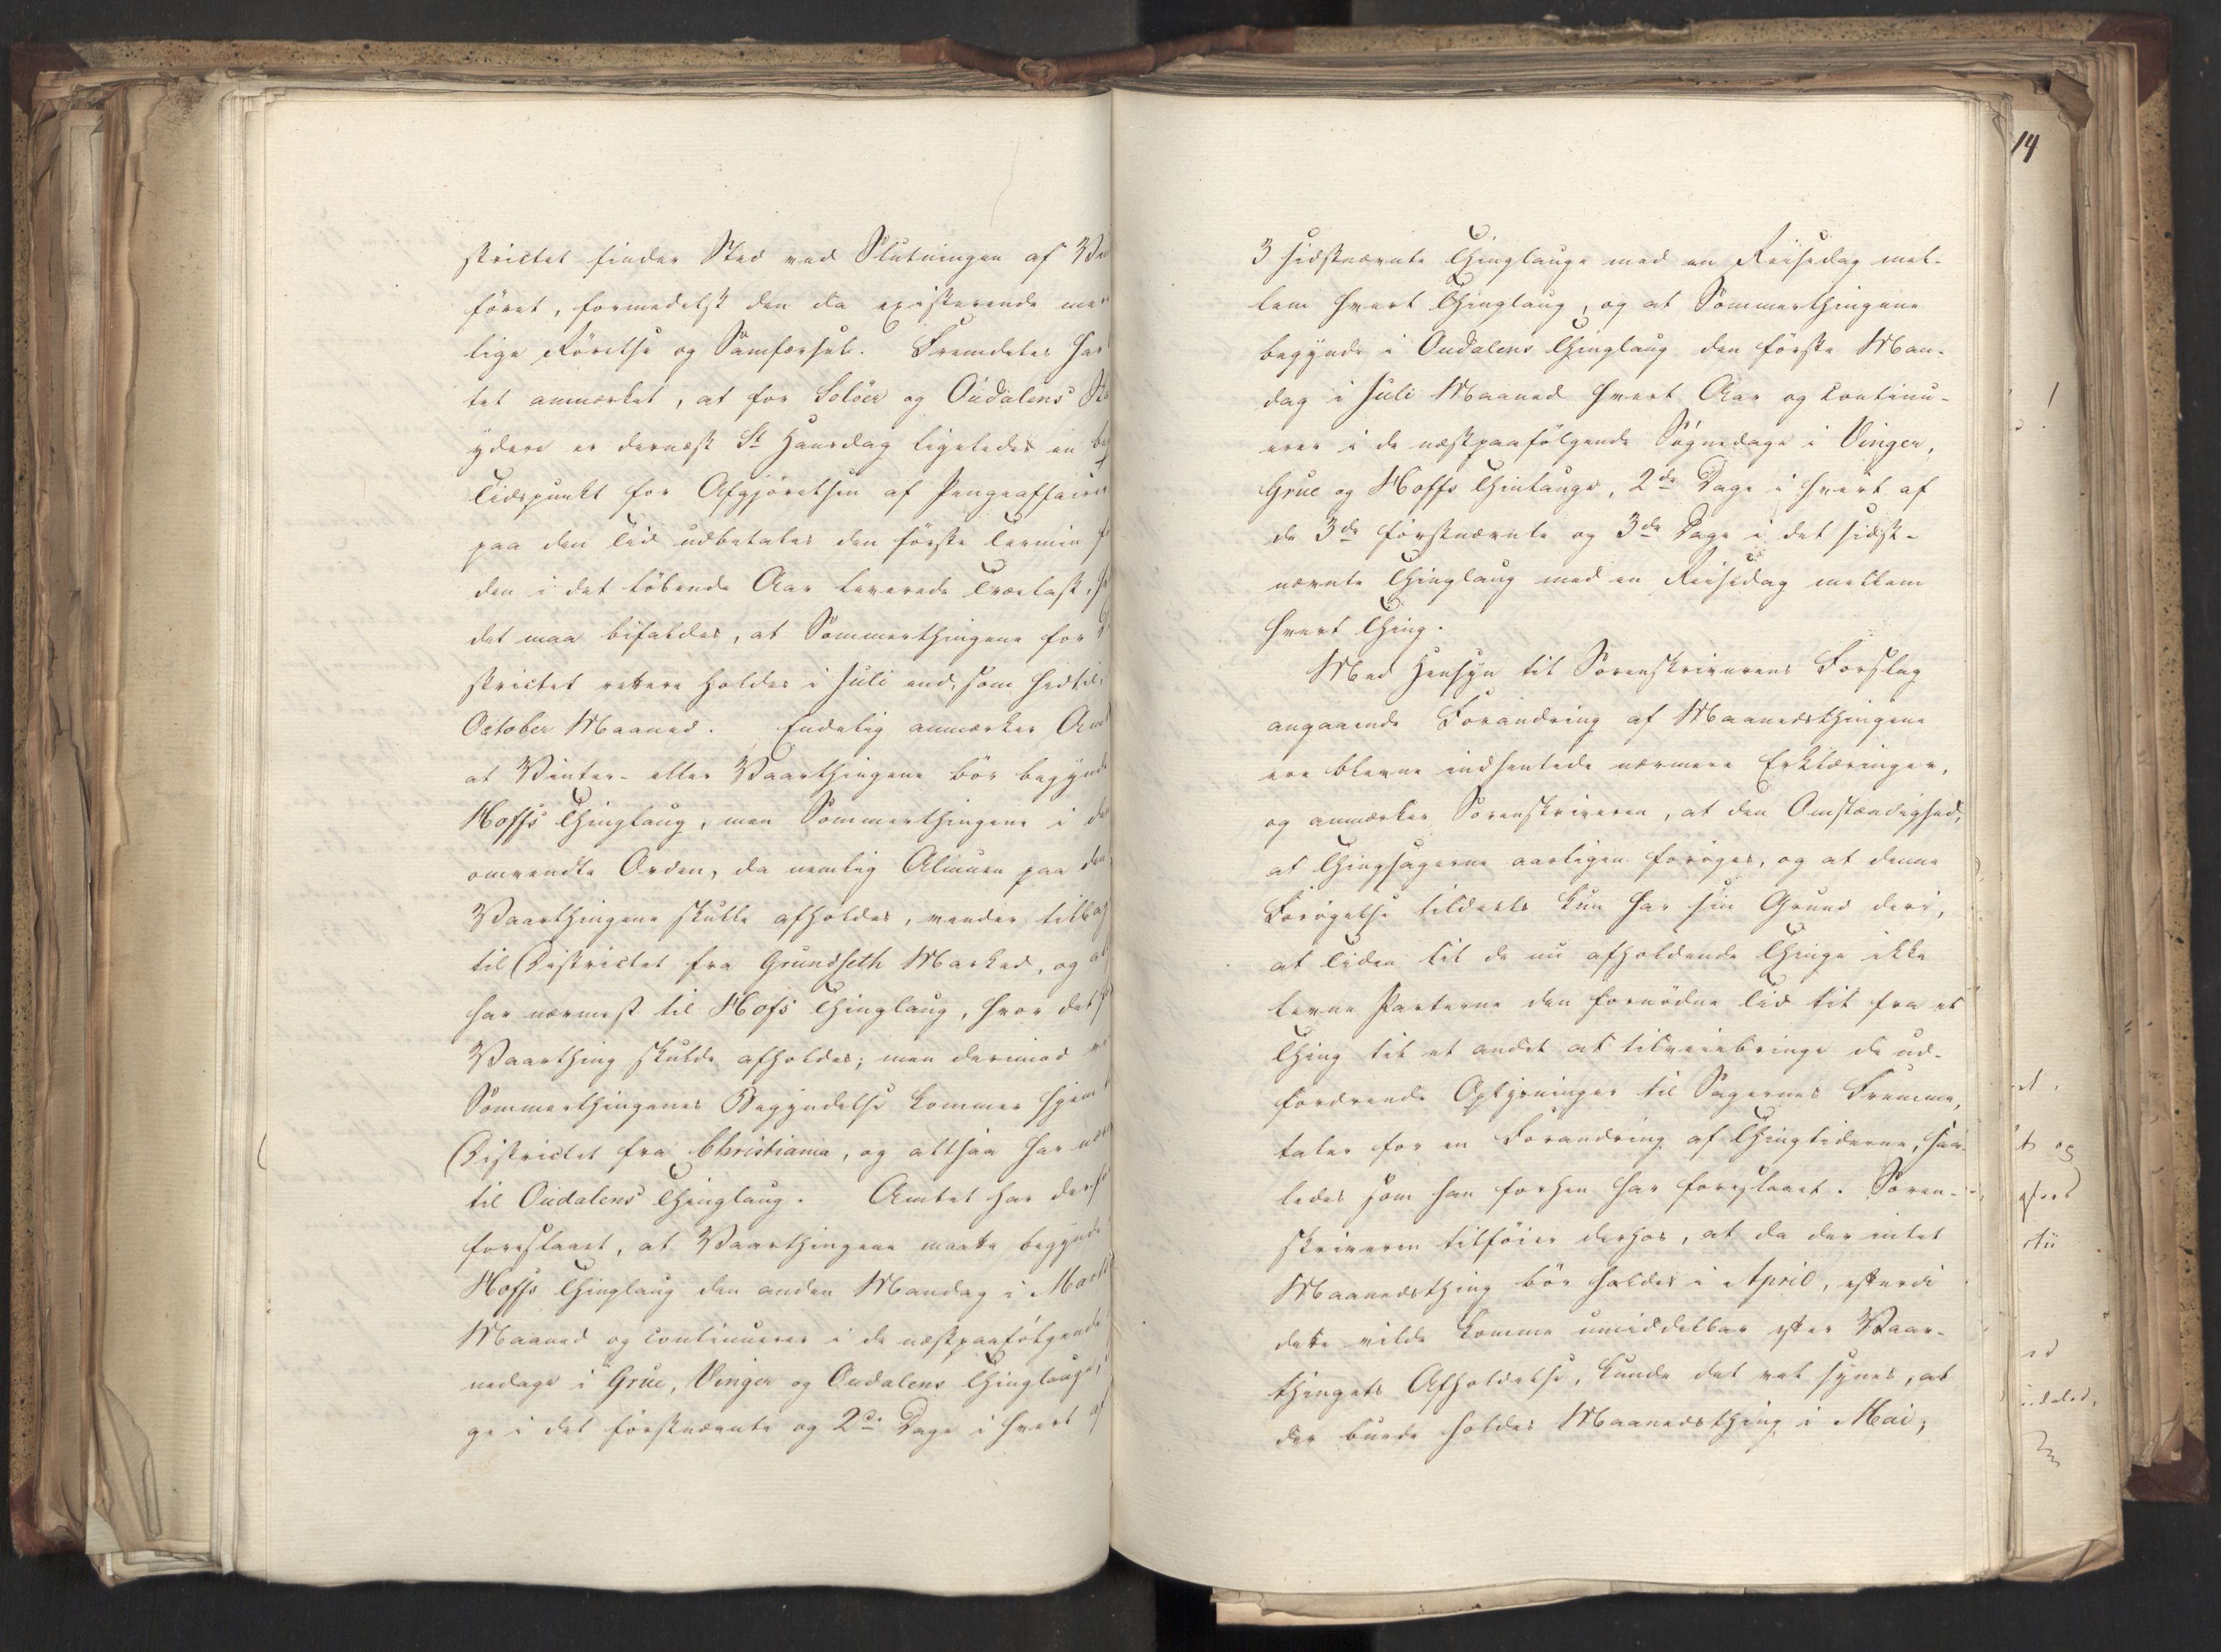 strictet finder Sted ved Slutningen af Vin
föret, formedelst den da existerende mer
lige Rörelse og Samfærsel. Fremdeles har
tet anmærket, at for Solöer og Oudalens Sk
ydere er dernæst St Hansdag ligeledes en be
Tidspunkt for Afgjörelsen af Pengeaffairer
paa den Tid udbetales den förste Termin f
den i det löbende Aar leverede Trælast, h
det maa bifaldes, at Sommerthingene for D
strictet rettere holdes i Juli end, som hidtil, i
October Maaned. Endelig anmærker Amt
at Vinter- eller Vaarthingene bör begynde
Hoffs Thinglaug, men Sommerthingene i den
omvendte Orden, da nemlig Almuen paa den
Vaarthingene skulle afholdes, vender tilbag
til Districtet fra Grundseth Marked, og al
har nærmest til Hofs Thinglaug, hvor det f
Vaarthing skulde afholdes; men derimod ve
Sommerthingenes Begyndelse kommer hjem
Districtet fra Christiania, og altsaa har nær
til Oudalens Thinglaug. Amtet har derfo
foreslaaet, at Vaarthingene maatte begynde
Hoffs Thinglaug den anden Mandag i Marts
Maaned og continuerer i de næstpaafölgende
nedage i Grue, Vinger og Oudalens Thinglauge,
ge i det förstnævnte og 2de Dage i hvert af
14
3 sidstnævnte Thinglauge med en Reisedag mel-
lem hvert Thinglaug, og at Sommerthingene
begynde i Oudalens Thinglaug den förste Man-
dag i Juli Maaned hvert Aar og continu-
erer i de næstpaafölgende Sögnedage i Vinger,
Grue og Hoffs Thinlauge, 2de Dage i hvert af
de 3de förstnævnte og 3de Dage i det sidst-
nævnte Thinglaug med en Reisedag mellem
hvert Thing.
Med Hensyn til Sorenskriverens Forslag
angaaende Forandring af Maanedsthingene
ere blevne indhentede nærmere Erklæringer,
og anmærker Sorenskriveren, at den Omstændighed,
at Thingsagerne aarligen foröges, og at denne
Forögelse tildeels kun har sin Grund deri,
at Tiden til de nu afholdende Thinge ikke
levne Parterne den fornödne Tid til fra et
Thing til et andet at tilveiebringe de ud-
fordrende Oplysninger til Sagernes Fremme,
taler for en Forandring af Thingtiderne, saa-
ledes som han forhen har foreslaaet. Soren-
skriveren tilföier derhos, at da der intet
Maanedsthing bör holdes i April, efterdi
dette vilde komme umiddelbar efter Vaar-
thingets Afholdelse, kunde det vel synes, at
der burde holdes Maanedsthing i Mai;